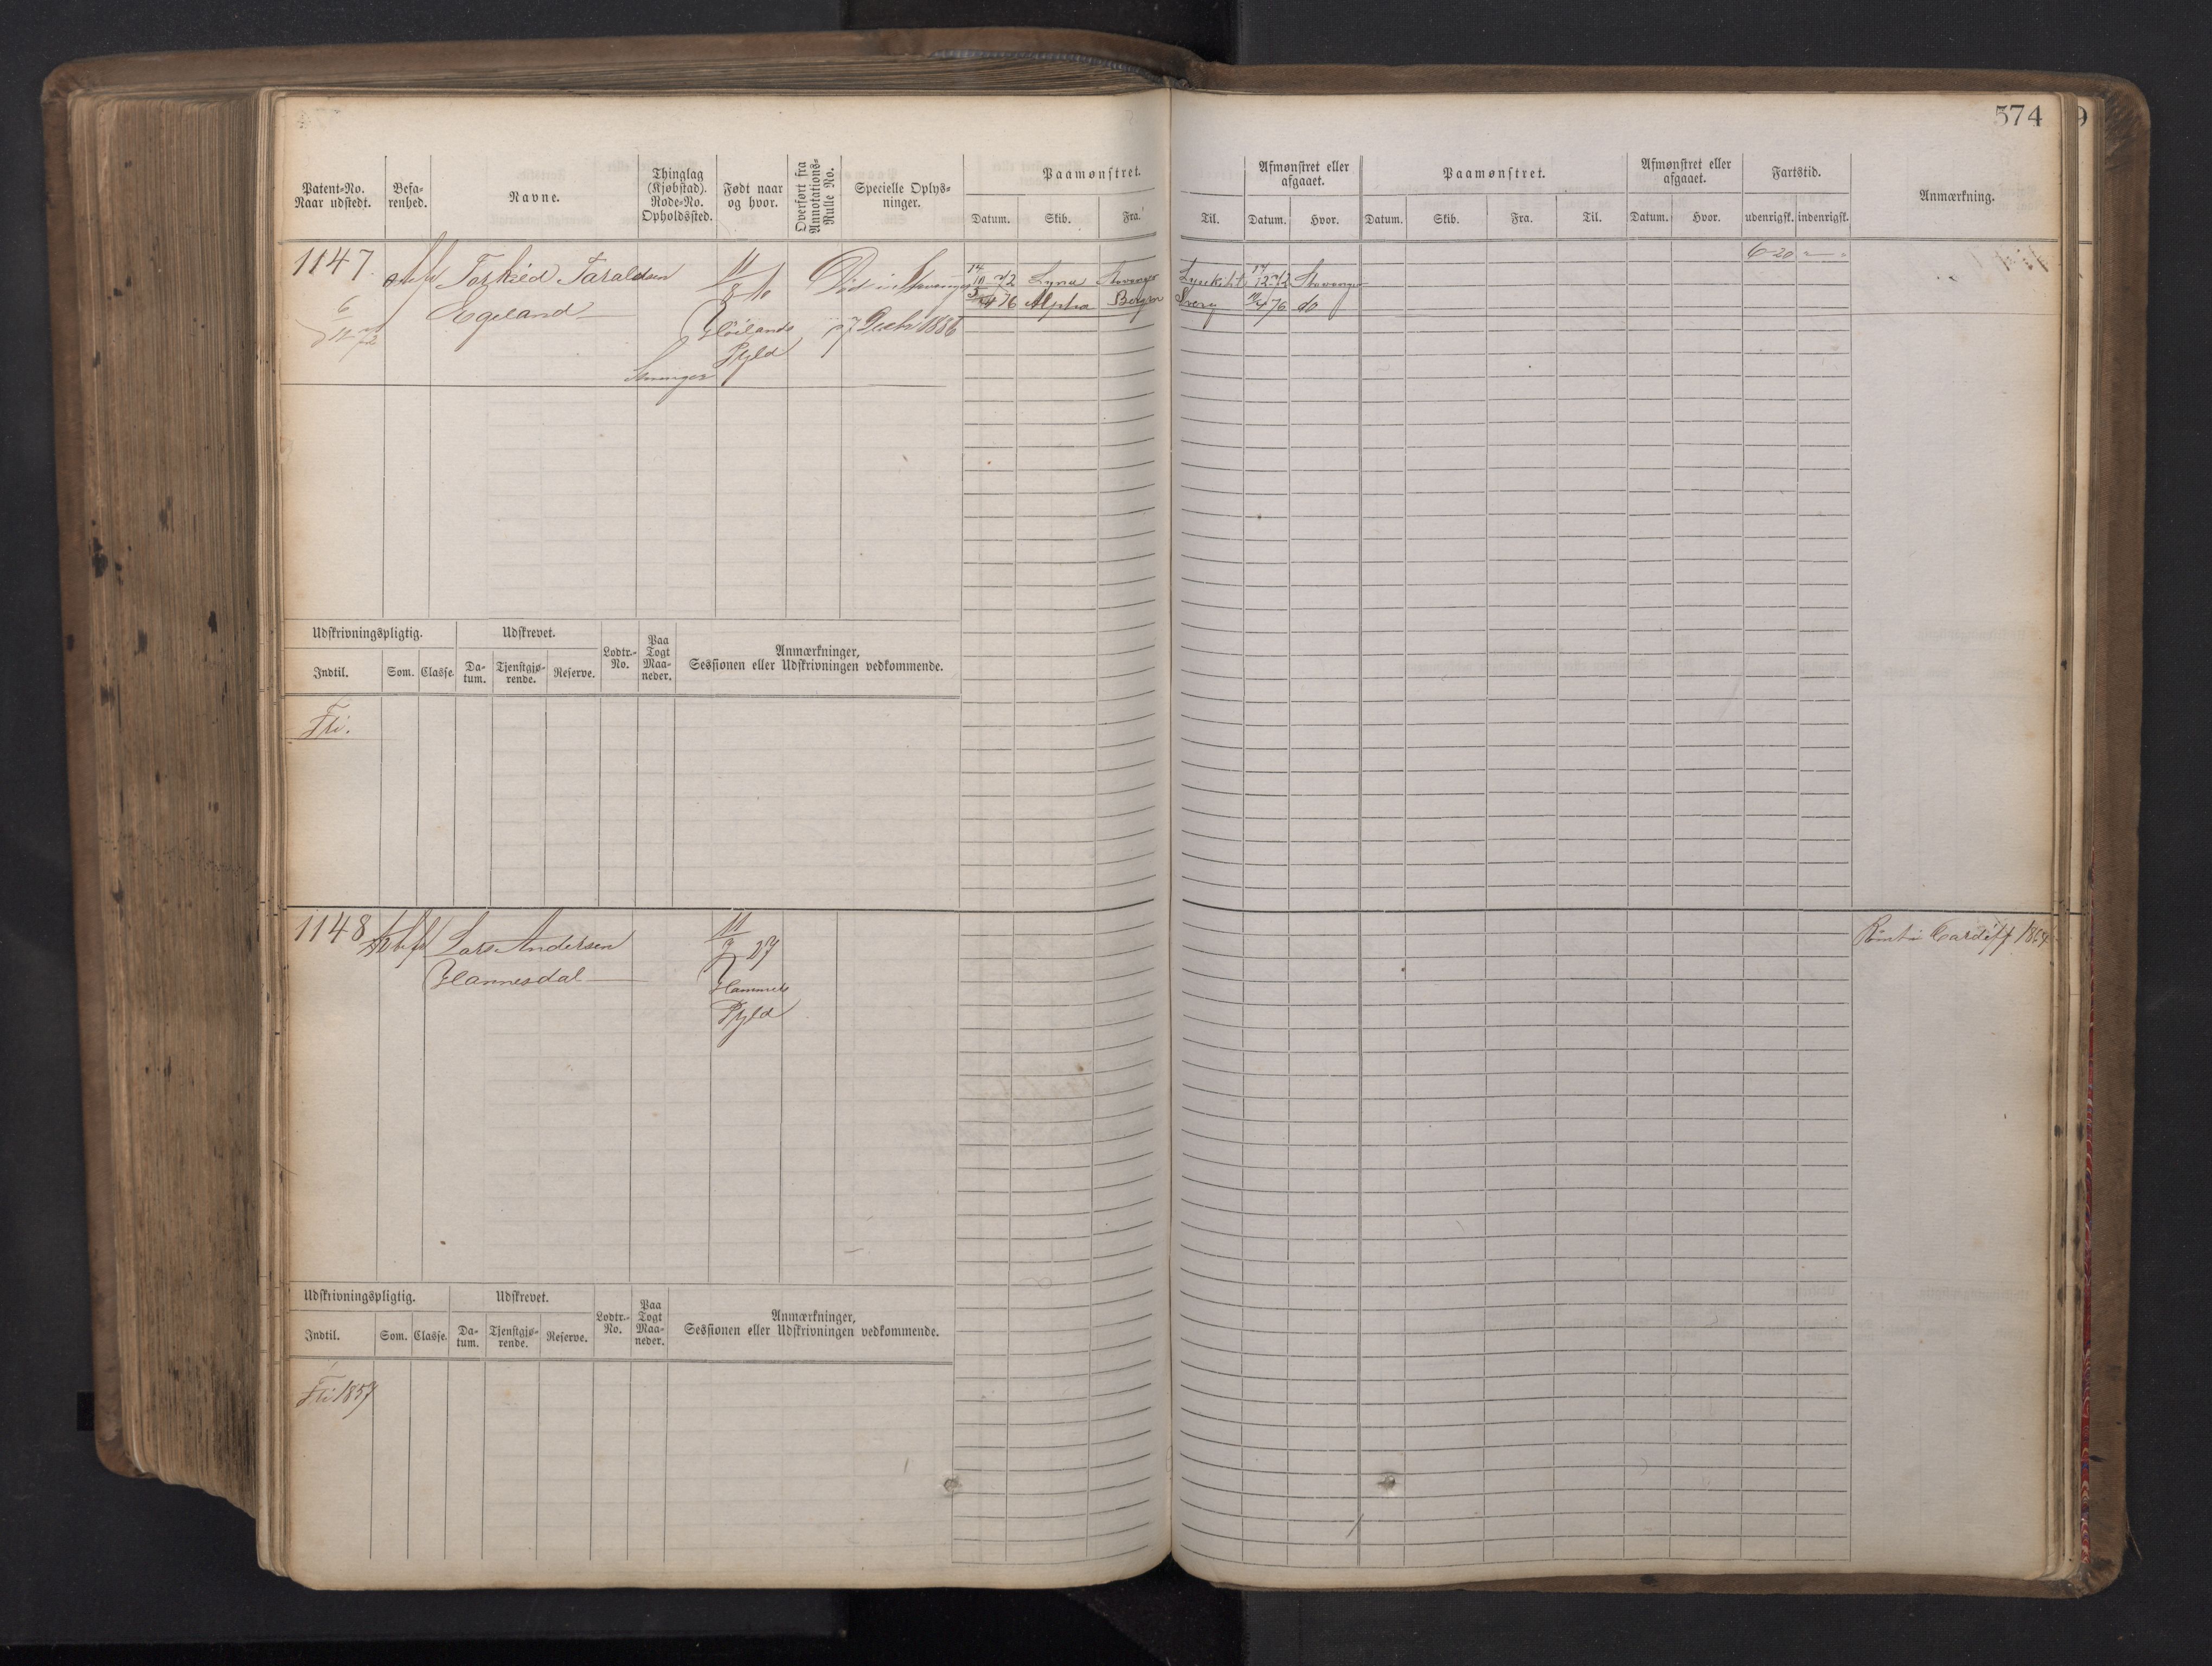 574
Patent=No.
Naar udstedt.
Befa=
renhed.
Navne.
Thinglag
(Kjøbstad).
Rode=No.
Opholdssted.
Født naar
og hvor.
Overført fra
Annotations=
Rulle No.
Specielle Oplys=
ninger.
Paamønstret.
Datum. Skib. Fra.
Til.
Afmønstret eller
afgaaet.
Datum. Hvor.
Paamønstret.
Datum. Skib. Fra. Til.
Afmønstret eller
afgaaet.
Datum. Hvor.
Fartstid.
udenrigsk. indenrigsk.
Anmærkning.
1147. Torkild Taraldsen
Egeland
11
8
Høilands
Ryld
Stavanger
Død i Stavanger
7 Decbr 1886
14
10 72 Lyna Stavanger 12 72 Stavanger
3
4 76 Alpha Bergen 4 76 do
6 20
Udskrivningspligtig.
Indtil. Som. Classe.
Udskrevet.
Da=
tum.
Tjenstgjø=
rende.
Reserve.
Lodtr.=
No.
Paa
Togt
Maa=
neder.
Anmærkninger,
Sessionen eller Udskrivningen vedkommende.
Fri.
1148 Lars Andersen
Hannesdal
11
9 27
Hammer
Ryld
Rømt i Cardiff 1864
Udskrivningspligtig.
Indtil. Som. Classe.
Udskrevet.
Da=
tum.
Tjenstgjø=
rende.
Reserve.
Lodtr.=
No.
Paa
Togt
Maa=
neder.
Anmærkninger,
Sessionen eller Udskrivningen vedkommende.
Fri 1857